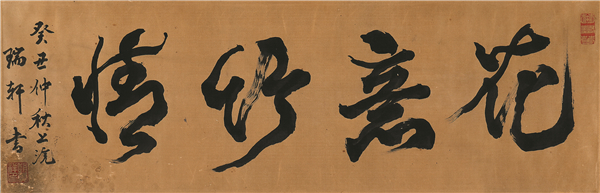 花意竹情
癸丑仲秋上浣
瑞軒書